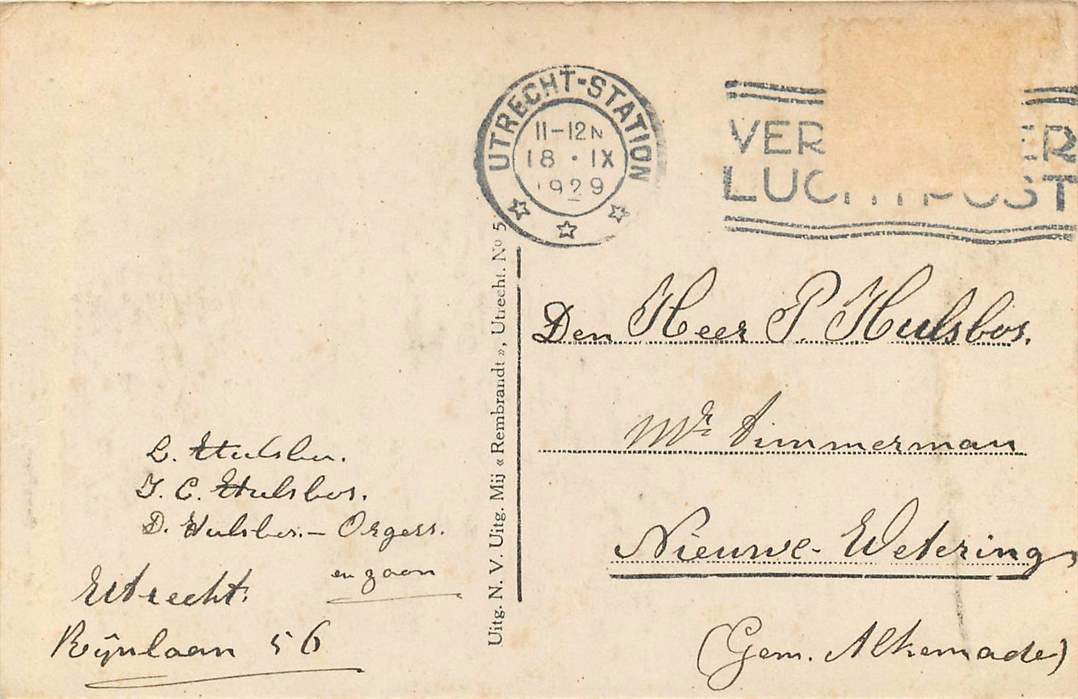 UTRECHT-STATION
11-12N
18 · IX
1929
VER ER
LUCHTPOST
Uitg. N. V. Uitg. Mij « Rembrandt », Utrecht. Nº 5
Den Heer P. Hulsbos.
Mr Timmerman
Nieuwe-Wetering
(Gem. Alkemade)
L. Hulsbos.
J. C. Hulsbos.
D. Hulsbos.- Orgers.
en zoon
Utrecht.
Rijnlaan 56